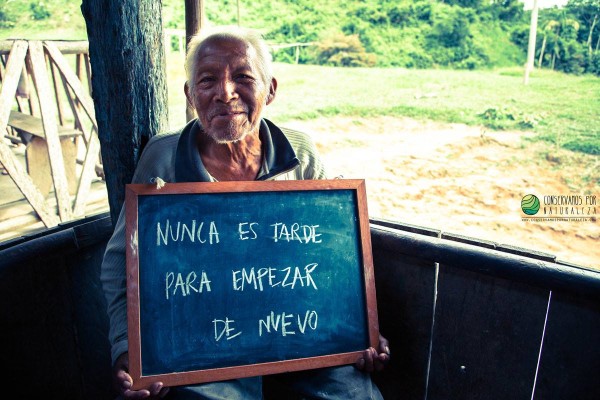 NUNCA ES TARDE
PARA EMPEZAR
DE NUEVO
CONSERVAMOS POR
NATURALEZA